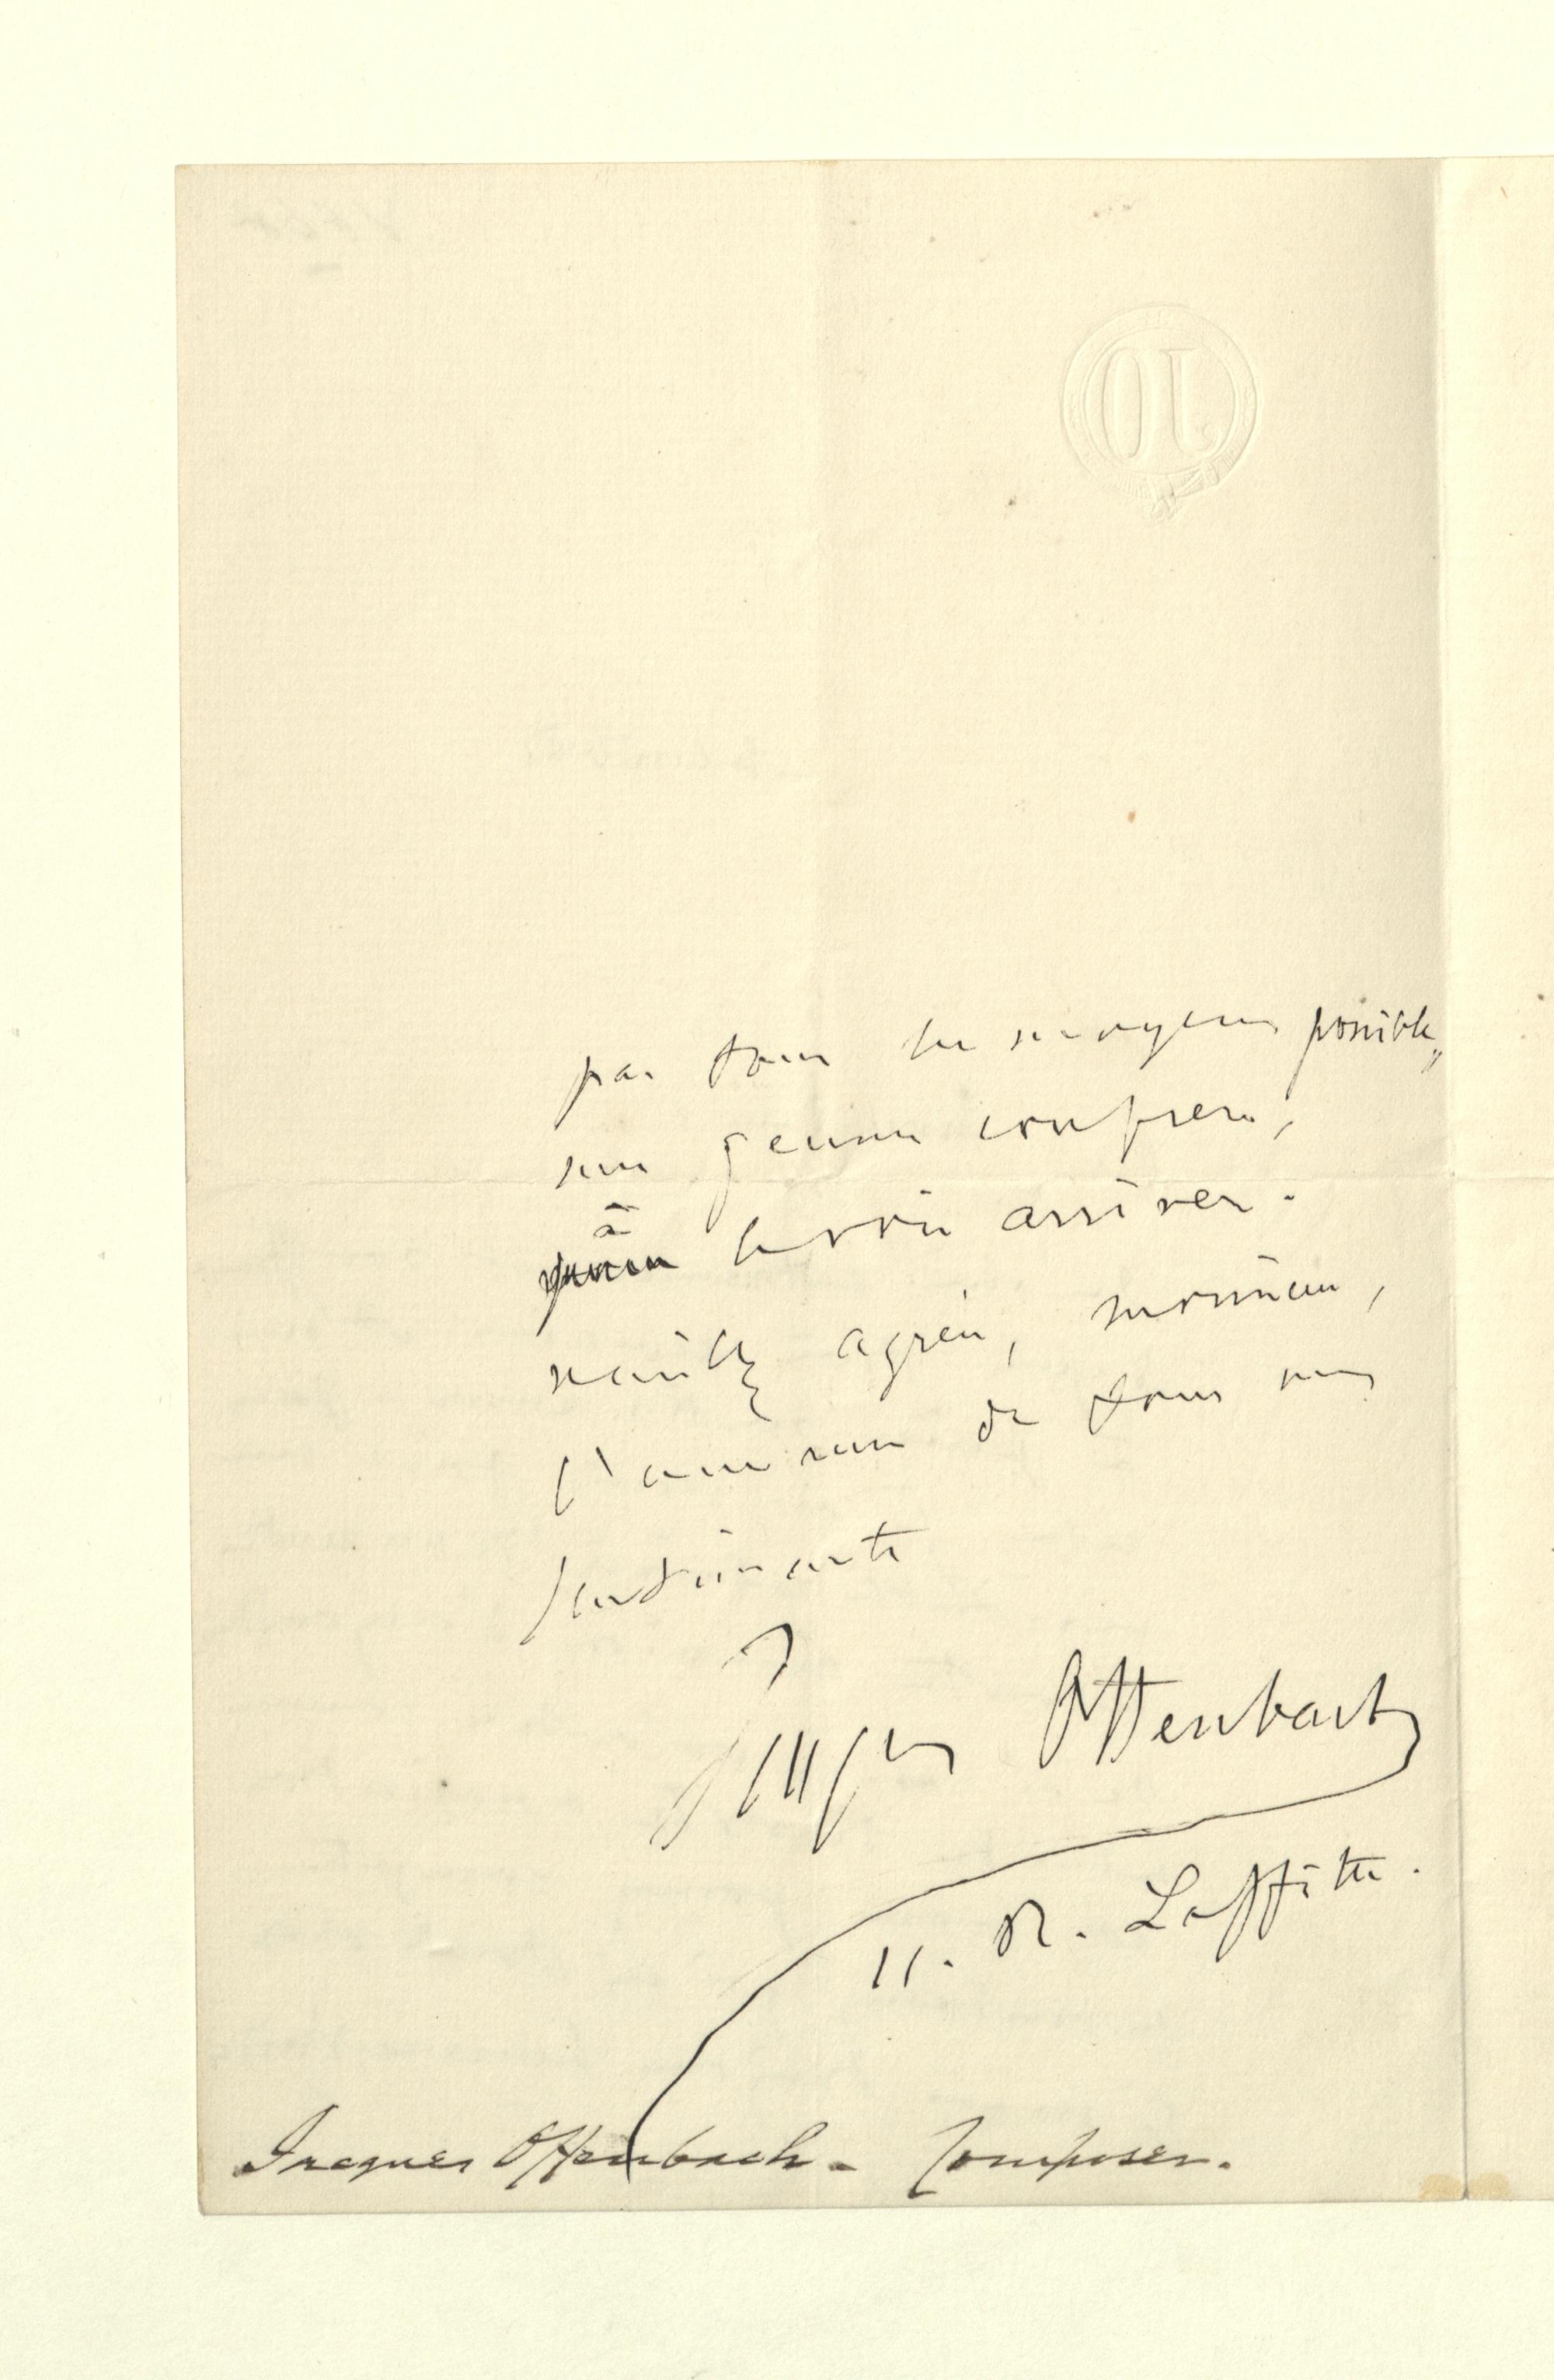 par tous les moyens possibles,
mes jeunes confreres,
à
le voir arriver.
veuillez agréer, monsieur,
l'assurance de tous mes
sentiments
Jacques Offenbach
11. R. Laffitte.
Jacques Offenbach - Composer.
JO